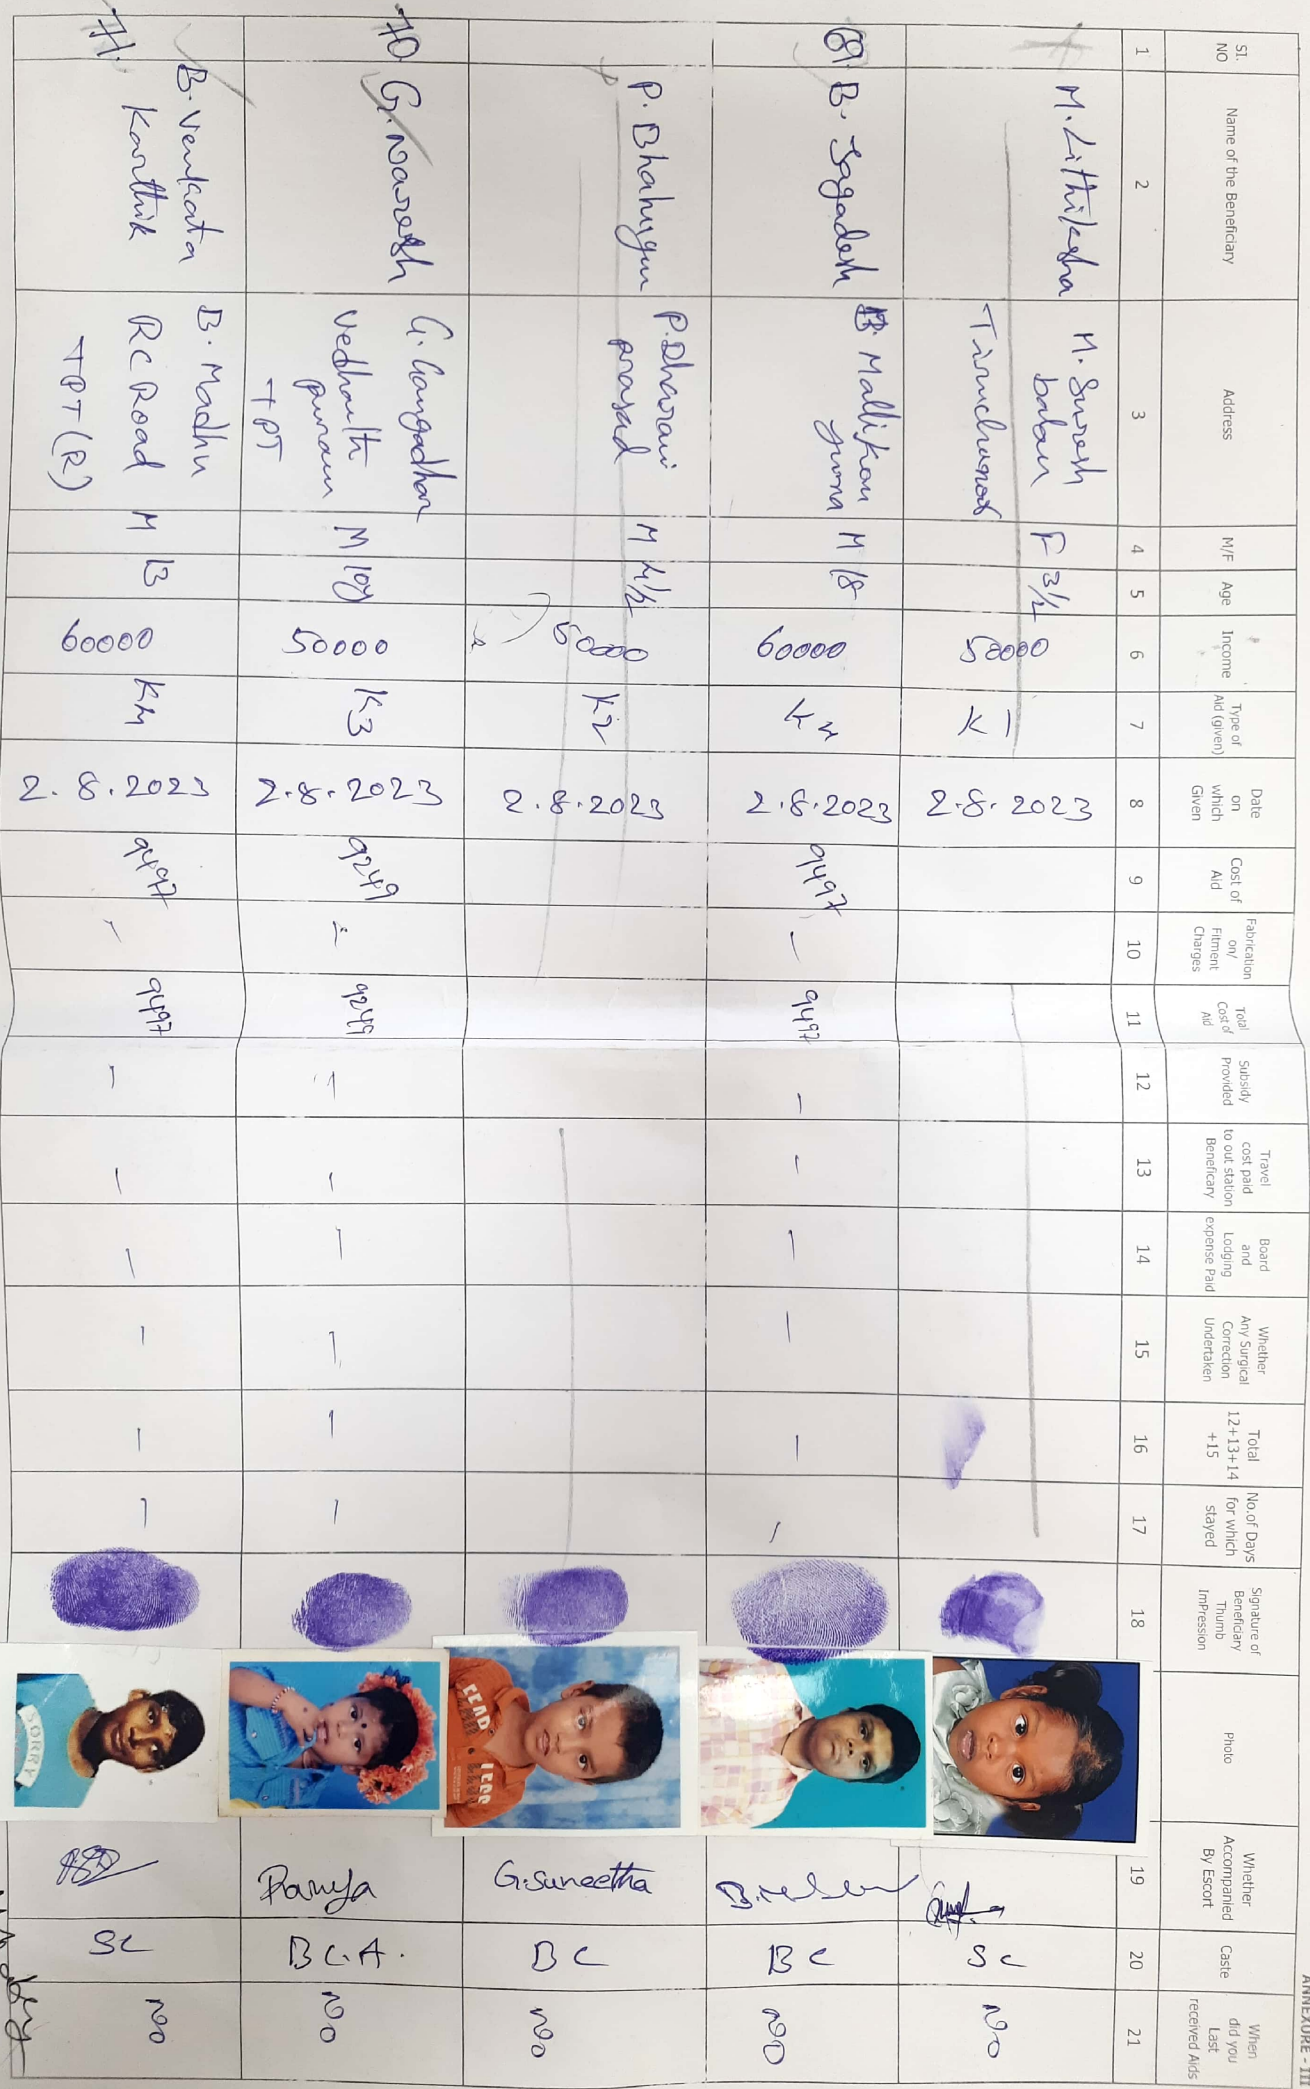 ANNEXURE - III
Sl. NO
Name of the Beneficiary
Address
M/F
Age
Income
Type of Aid (given)
Date on which Given
Cost of Aid
Fabrication on/ Fitment Charges
Total Cost of Aid
Subsidy Provided
Travel cost paid to out station Beneficary
Board and Lodging expense Paid
Whether Any Surgical Correction Undertaken
Total 12+13+14 +15
No.of Days for which stayed
Signature of Beneficiary Thumb ImPression
Photo
Whether Accompanied By Escort
Caste
When did you Last received Aids
1 2 3 4 5 6 7 8 9 10 11 12 13 14 15 16 17 18 19 20 21
M. Lithiksha
M. Suresh
babu
F 3½
50000
K1
2.8.2023
SC
No
69. B. Jagadesh
B. Mallikar
juna
M 18
60000
K4
2.8.2023
9497
—
9497
—
—
—
—
—
—
BC
No
P. Bhahugun
P. Dharani
prasad
M 4½
50000
K2
2.8.2023
READ
LESS
G. Suneetha
BC
No
70 G. Naresh
G. Gangadhar
Vedhanth
puram
TPT
M 10y
50000
K3
2.8.2023
9249
—
9249
—
—
—
—
—
—
Ramya
BC.A.
No
71. B. Venkata
Karthik
B. Madhu
RC Road
TPT (R)
M 13
60000
K4
2.8.2023
9497
—
9497
—
—
—
—
—
—
SORRY
SC
No